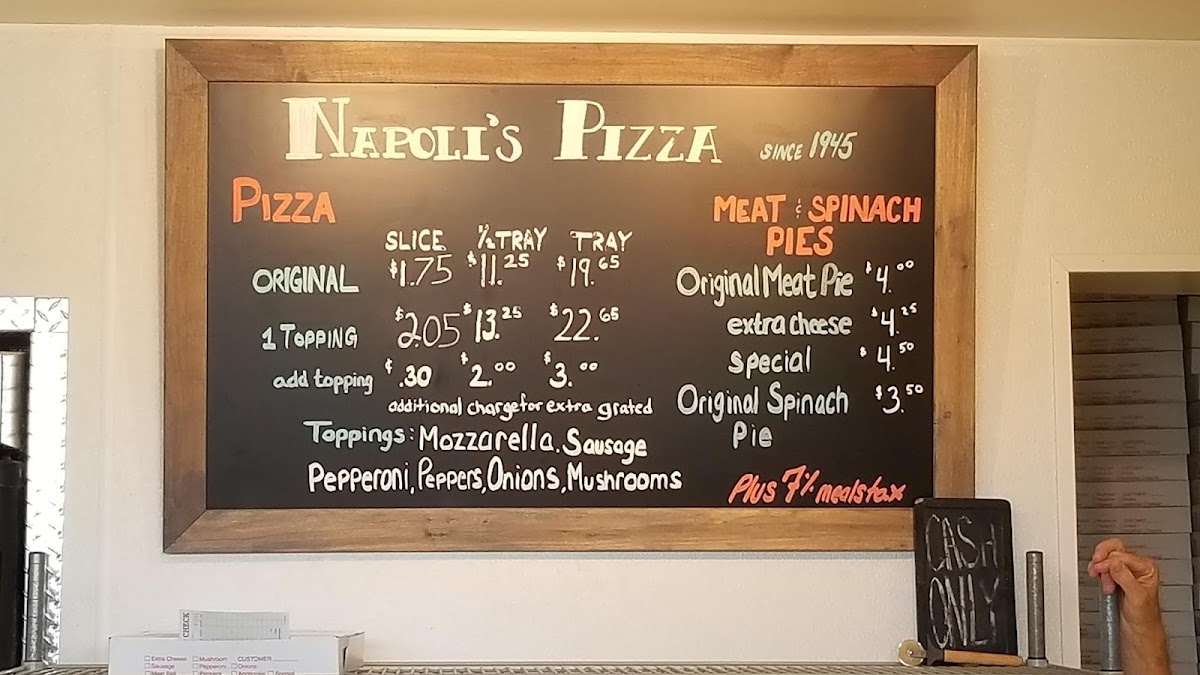 NAPOLI'S PIZZA SINCE 1945
PIZZA
SLICE ½ TRAY TRAY
ORIGINAL $1.75 $11.25 $19.65
1 TOPPING $205 $13.25 $22.65
add topping $.30 $2.00 $3.00
additional charge for extra grated
Toppings: Mozzarella. Sausage
Pepperoni, Peppers, Onions, Mushrooms
MEAT & SPINACH
PIES
Original Meat Pie $4.00
extra cheese $4.25
special $4.50
Original Spinach $3.50
Pie
Plus 7% meals tax
CASH
ONLY
CHECK
Extra Cheese Mushroom CUSTOMER
Sausage Pepperoni Onions
Meat Ball Peppers Anchovies Special